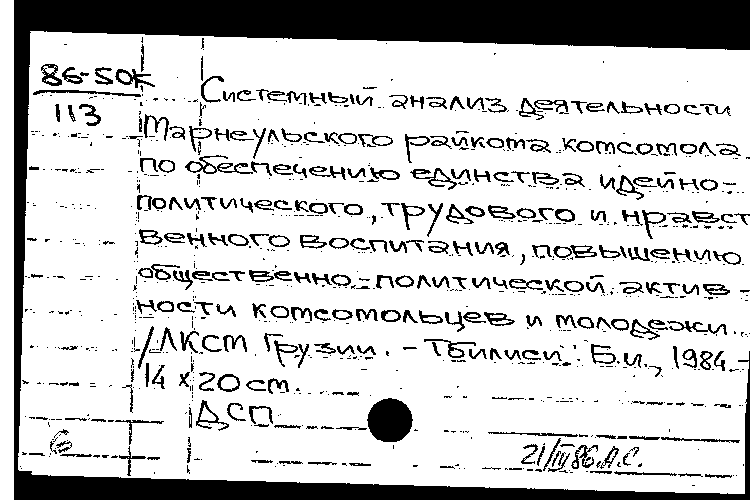 86-50К
113
Системный анализ деятельности
Марнеульского райкома комсомола
по обеспечению единства идейно-
политического, трудового и нравст
венного воспитания, повышению
общественно-политической актив-
ности комсомольцев и молодежи.
/ЛКСМ Грузии. - Тбилиси: Б.и., 1984.-
14 x 20 см.
ДСП
21/III 86. А.С.